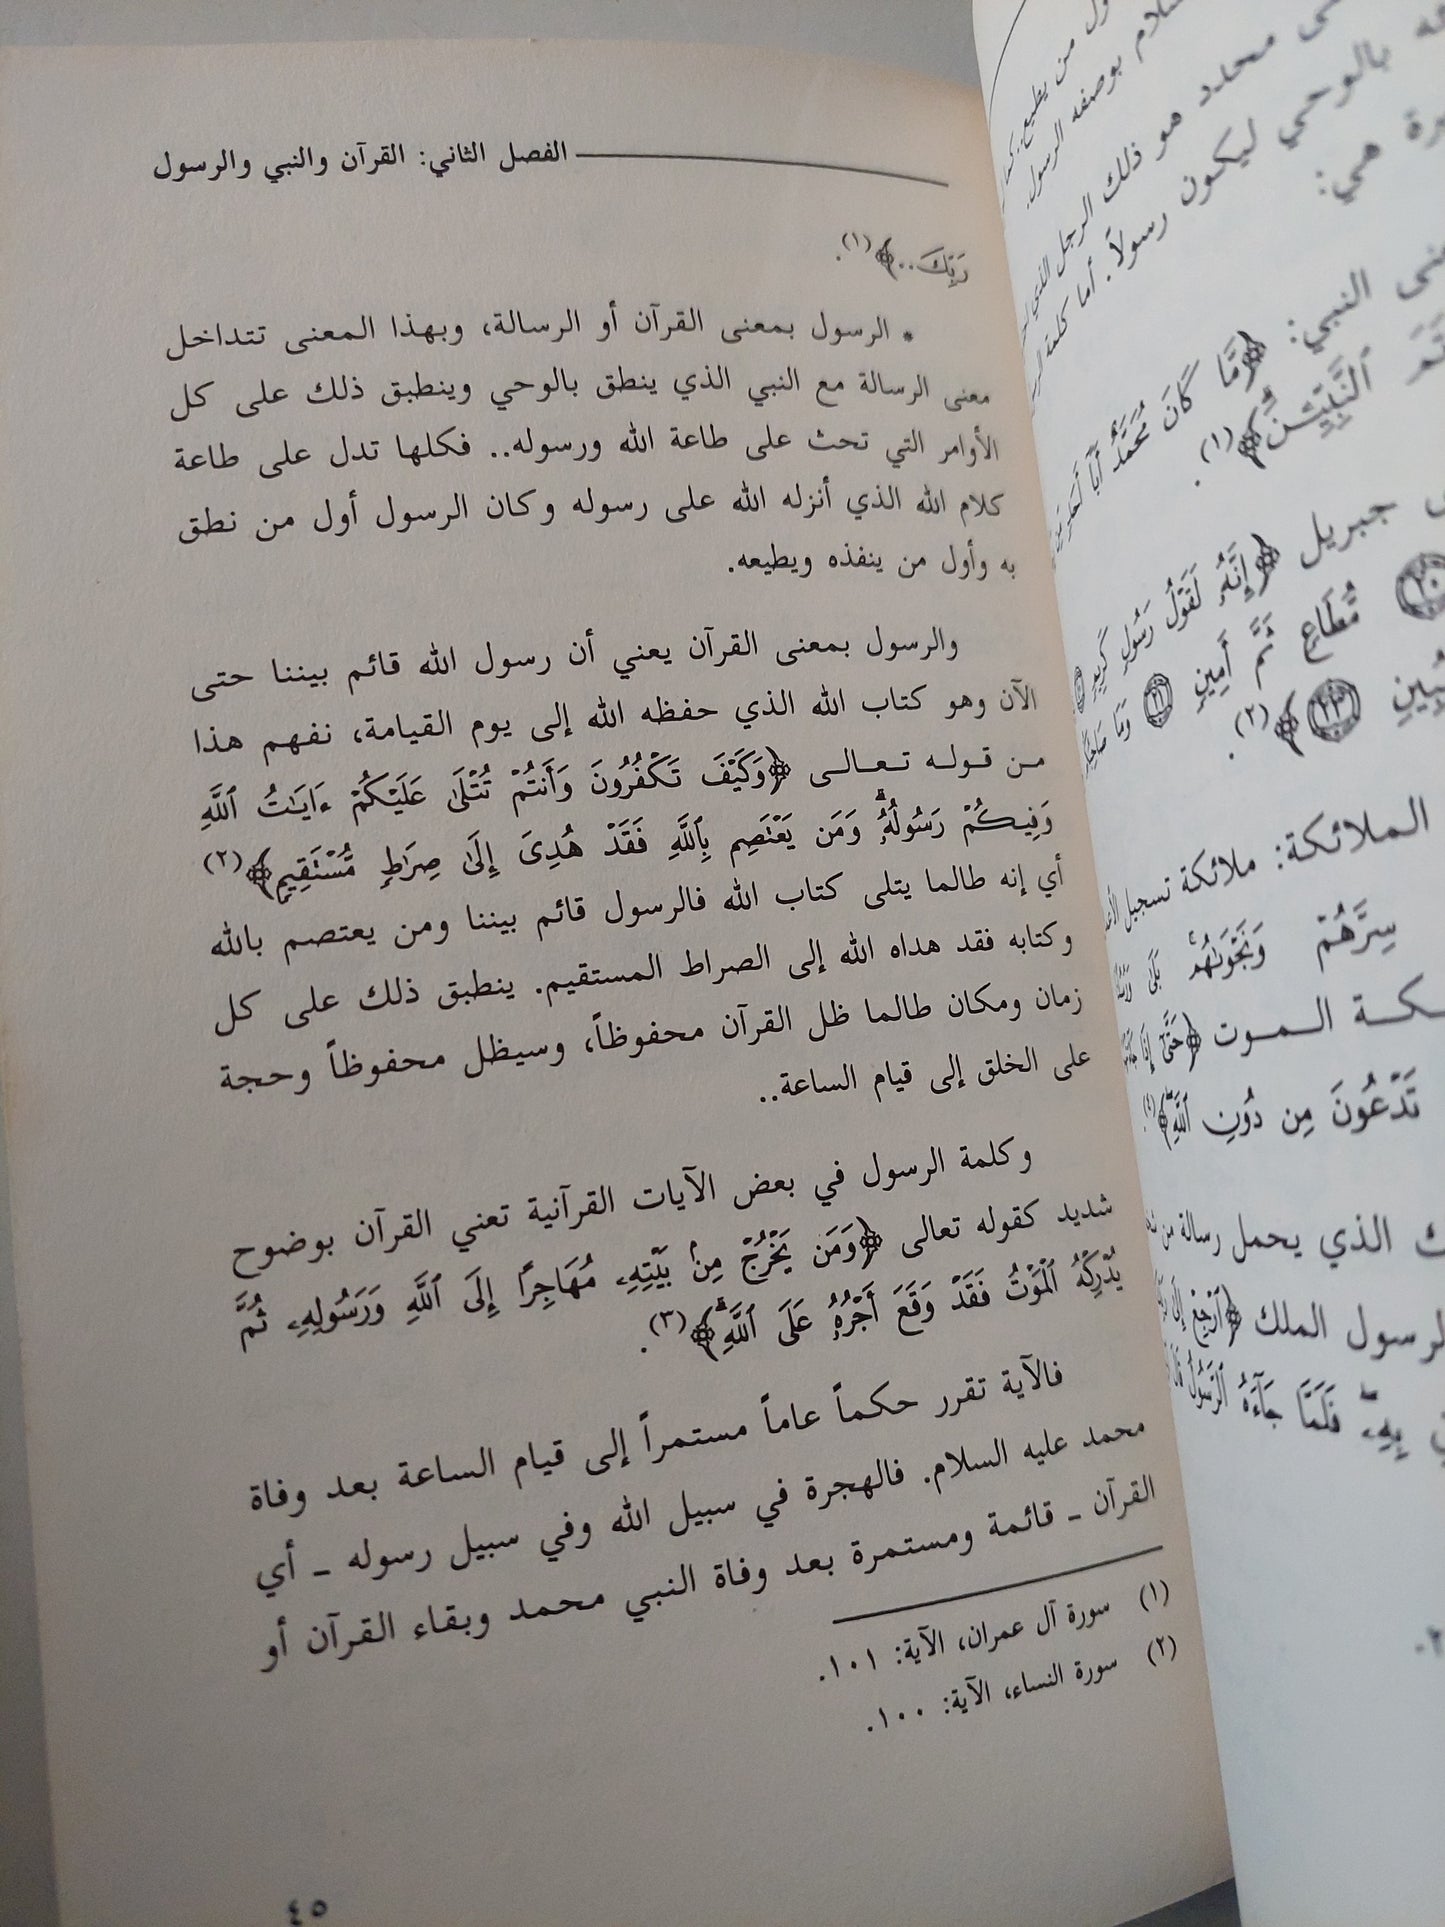 الفصل الثاني: القرآن والنبي والرسول
رَبِّكَ..﴾(١).
* الرسول بمعنى القرآن أو الرسالة، وبهذا المعنى تتداخل
معنى الرسالة مع النبي الذي ينطق بالوحي وينطبق ذلك على كل
الأوامر التي تحث على طاعة الله ورسوله.. فكلها تدل على طاعة
كلام الله الذي أنزله الله على رسوله وكان الرسول أول من نطق
به وأول من ينفذه ويطيعه.
والرسول بمعنى القرآن يعني أن رسول الله قائم بيننا حتى
الآن وهو كتاب الله الذي حفظه الله إلى يوم القيامة، نفهم هذا
من قوله تعالى ﴿وَكَيْفَ تَكْفُرُونَ وَأَنتُمْ تُتْلَىٰ عَلَيْكُمْ ءَايَـٰتُ ٱللَّهِ
وَفِيكُمْ رَسُولُهُۥ ۗ وَمَن يَعْتَصِم بِٱللَّهِ فَقَدْ هُدِىَ إِلَىٰ صِرَٰطٍ مُّسْتَقِيمٍ﴾(٢)
أي إنه طالما يتلى كتاب الله فالرسول قائم بيننا ومن يعتصم بالله
وكتابه فقد هداه الله إلى الصراط المستقيم. ينطبق ذلك على كل
زمان ومكان طالما ظل القرآن محفوظاً، وسيظل محفوظاً وحجة
على الخلق إلى قيام الساعة..
وكلمة الرسول في بعض الآيات القرآنية تعني القرآن بوضوح
شديد كقوله تعالى ﴿وَمَن يَخْرُجْ مِنۢ بَيْتِهِۦ مُهَاجِرًا إِلَى ٱللَّهِ وَرَسُولِهِۦ ثُمَّ
يُدْرِكْهُ ٱلْمَوْتُ فَقَدْ وَقَعَ أَجْرُهُۥ عَلَى ٱللَّهِ ۗ﴾(٣).
فالآية تقرر حكماً عاماً مستمراً إلى قيام الساعة بعد وفاة
محمد عليه السلام. فالهجرة في سبيل الله وفي سبيل رسوله - أي
القرآن - قائمة ومستمرة بعد وفاة النبي محمد وبقاء القرآن أو
(١) سورة آل عمران، الآية: ١٠١.
(٢) سورة النساء، الآية: ١٠٠.
٤٥
ول من يطيع
سلام بوصفه الرسول.
محدد هو ذلك الرجل الذي
بالوحي ليكون رسولاً. أما كلمة
هي:
النبي: ﴿مَّا كَانَ مُحَمَّدٌ أَبَآ أَحَدٍ
ٱلنَّبِيِّـۧنَ﴾(١).
جبريل ﴿إِنَّهُۥ لَقَوْلُ رَسُولٍ كَرِيمٍ
٢٠ مُّطَاعٍ ثَمَّ أَمِينٍ ٢١ وَمَا
٢٣﴾(٢).
الملائكة: ملائكة تسجيل
سِرَّهُمْ وَنَجْوَىٰهُم ۚ بَلَىٰ
الموت ﴿حَتَّىٰٓ إِذَا
تَدْعُونَ مِن دُونِ ٱللَّهِ ۖ﴾(٤).
الذي يحمل رسالة من
الرسول الملك ﴿ٱرْجِعْ إِلَىٰ
فَلَمَّا جَآءَهُ ٱلرَّسُولُ قَالَ